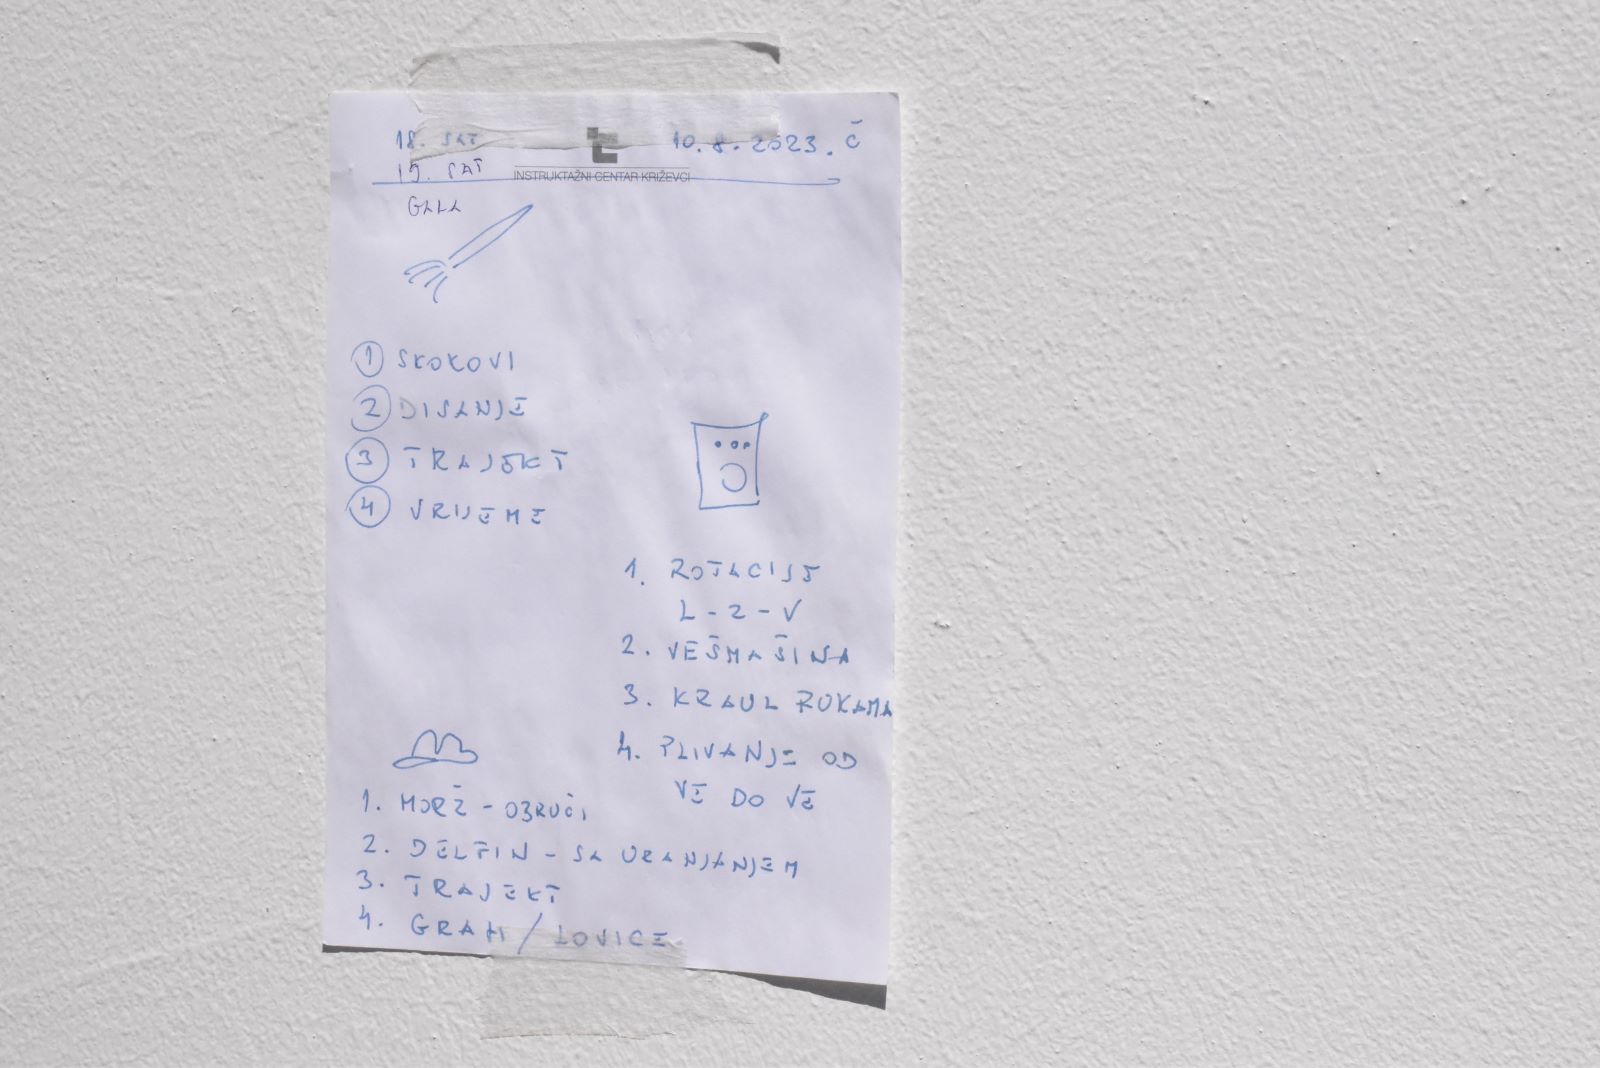 18. SAT
10.8.2023. Č
19. SAT
INSTRUKTAŽNI CENTAR KRIŽEVCI
GALA
1 SKOKOVI
2 DISANJE
3 TRAJEKT
4 VRIJEME
1. ROTACIJE
L-2-V
2. VEŠMAŠINA
3. KRAUL RUKAMA
4. PLIVANJE OD
VE DO VE
1. MORŽ - OBRUČI
2. DELFIN - SA URANJANJEM
3. TRAJEKT
4. GRAH / LOVICE